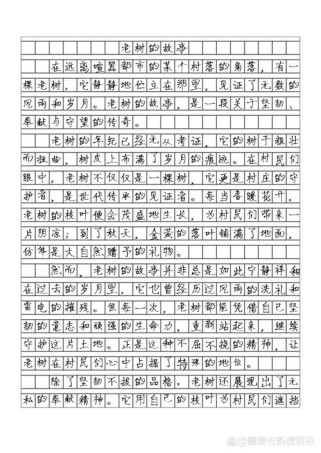 老树的故事
在远离喧嚣都市的某个村落的角落，有一
棵老树，它静静地伫立在那里，见证了无数的
风雨和岁月。老树的故事，是一段关于坚韧、
奉献与守望的传奇。
老树的年纪已经无从考证，它的树干粗壮
而扭曲，树皮上布满了岁月的痕迹。在村民们
眼中，老树不仅仅是一棵树，它更是村庄的守
护者，是世代传承的见证者。每当春暖花开，
老树的枝叶便会茂盛地生长，为村民们带来一
片阴凉；到了秋天，金黄的落叶铺满了地面，
仿佛是大自然赠予的礼物。
然而，老树的故事并非总是如此宁静祥和
在过去的岁月里，它也曾经历过风雨的洗礼和
雷电的摧残。但每一次，老树都能凭借自己坚
韧的意志和顽强的生命力，重新站起来，继续
守护这片土地。正是这种不屈不挠的精神，让
老树在村民们心中占据了特殊的地位。
除了坚韧不拔的品格，老树还展现出了无
私的奉献精神。它用自己的枝叶为村民们遮挡